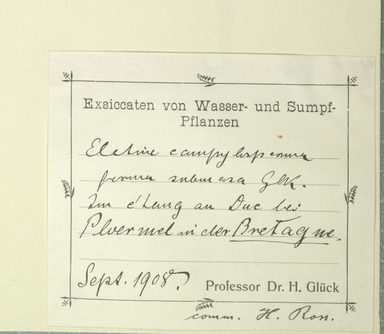 Exsiccaten von Wasser- und Sumpf-
Pflanzen
Elatine campylosperma
forma submersa Glk.
Im étang au Duc bei
Ploermel in der Bretagne.
Sept. 1908. Professor Dr. H. Glück
comm. H. Ross.